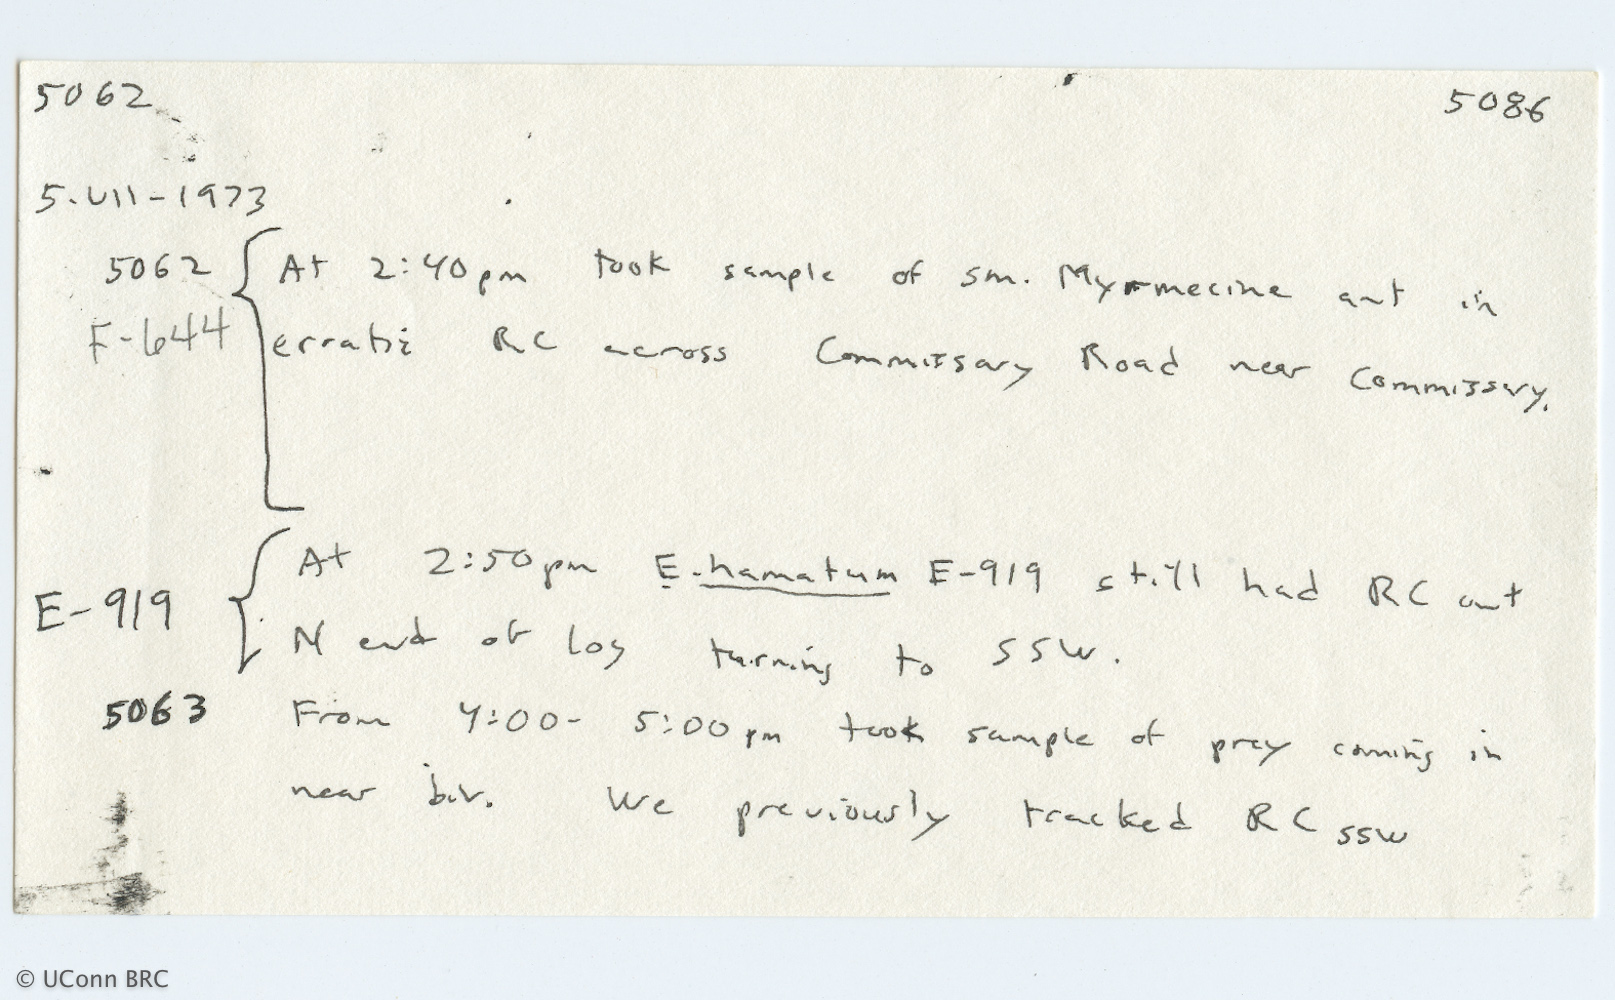 5062 5086
5.VII-1973
5062 At 2:40pm took sample of sm. Myrmecine ant in
F-644 erratic RC across Commissary Road near Commissary.
At 2:50pm E. hamatum E-919 still had RC out
E-919 N end of log turning to SSW.
5063 From 4:00-5:00pm took sample of prey coming in
near biv. We previously tracked RC SSW
© UConn BRC